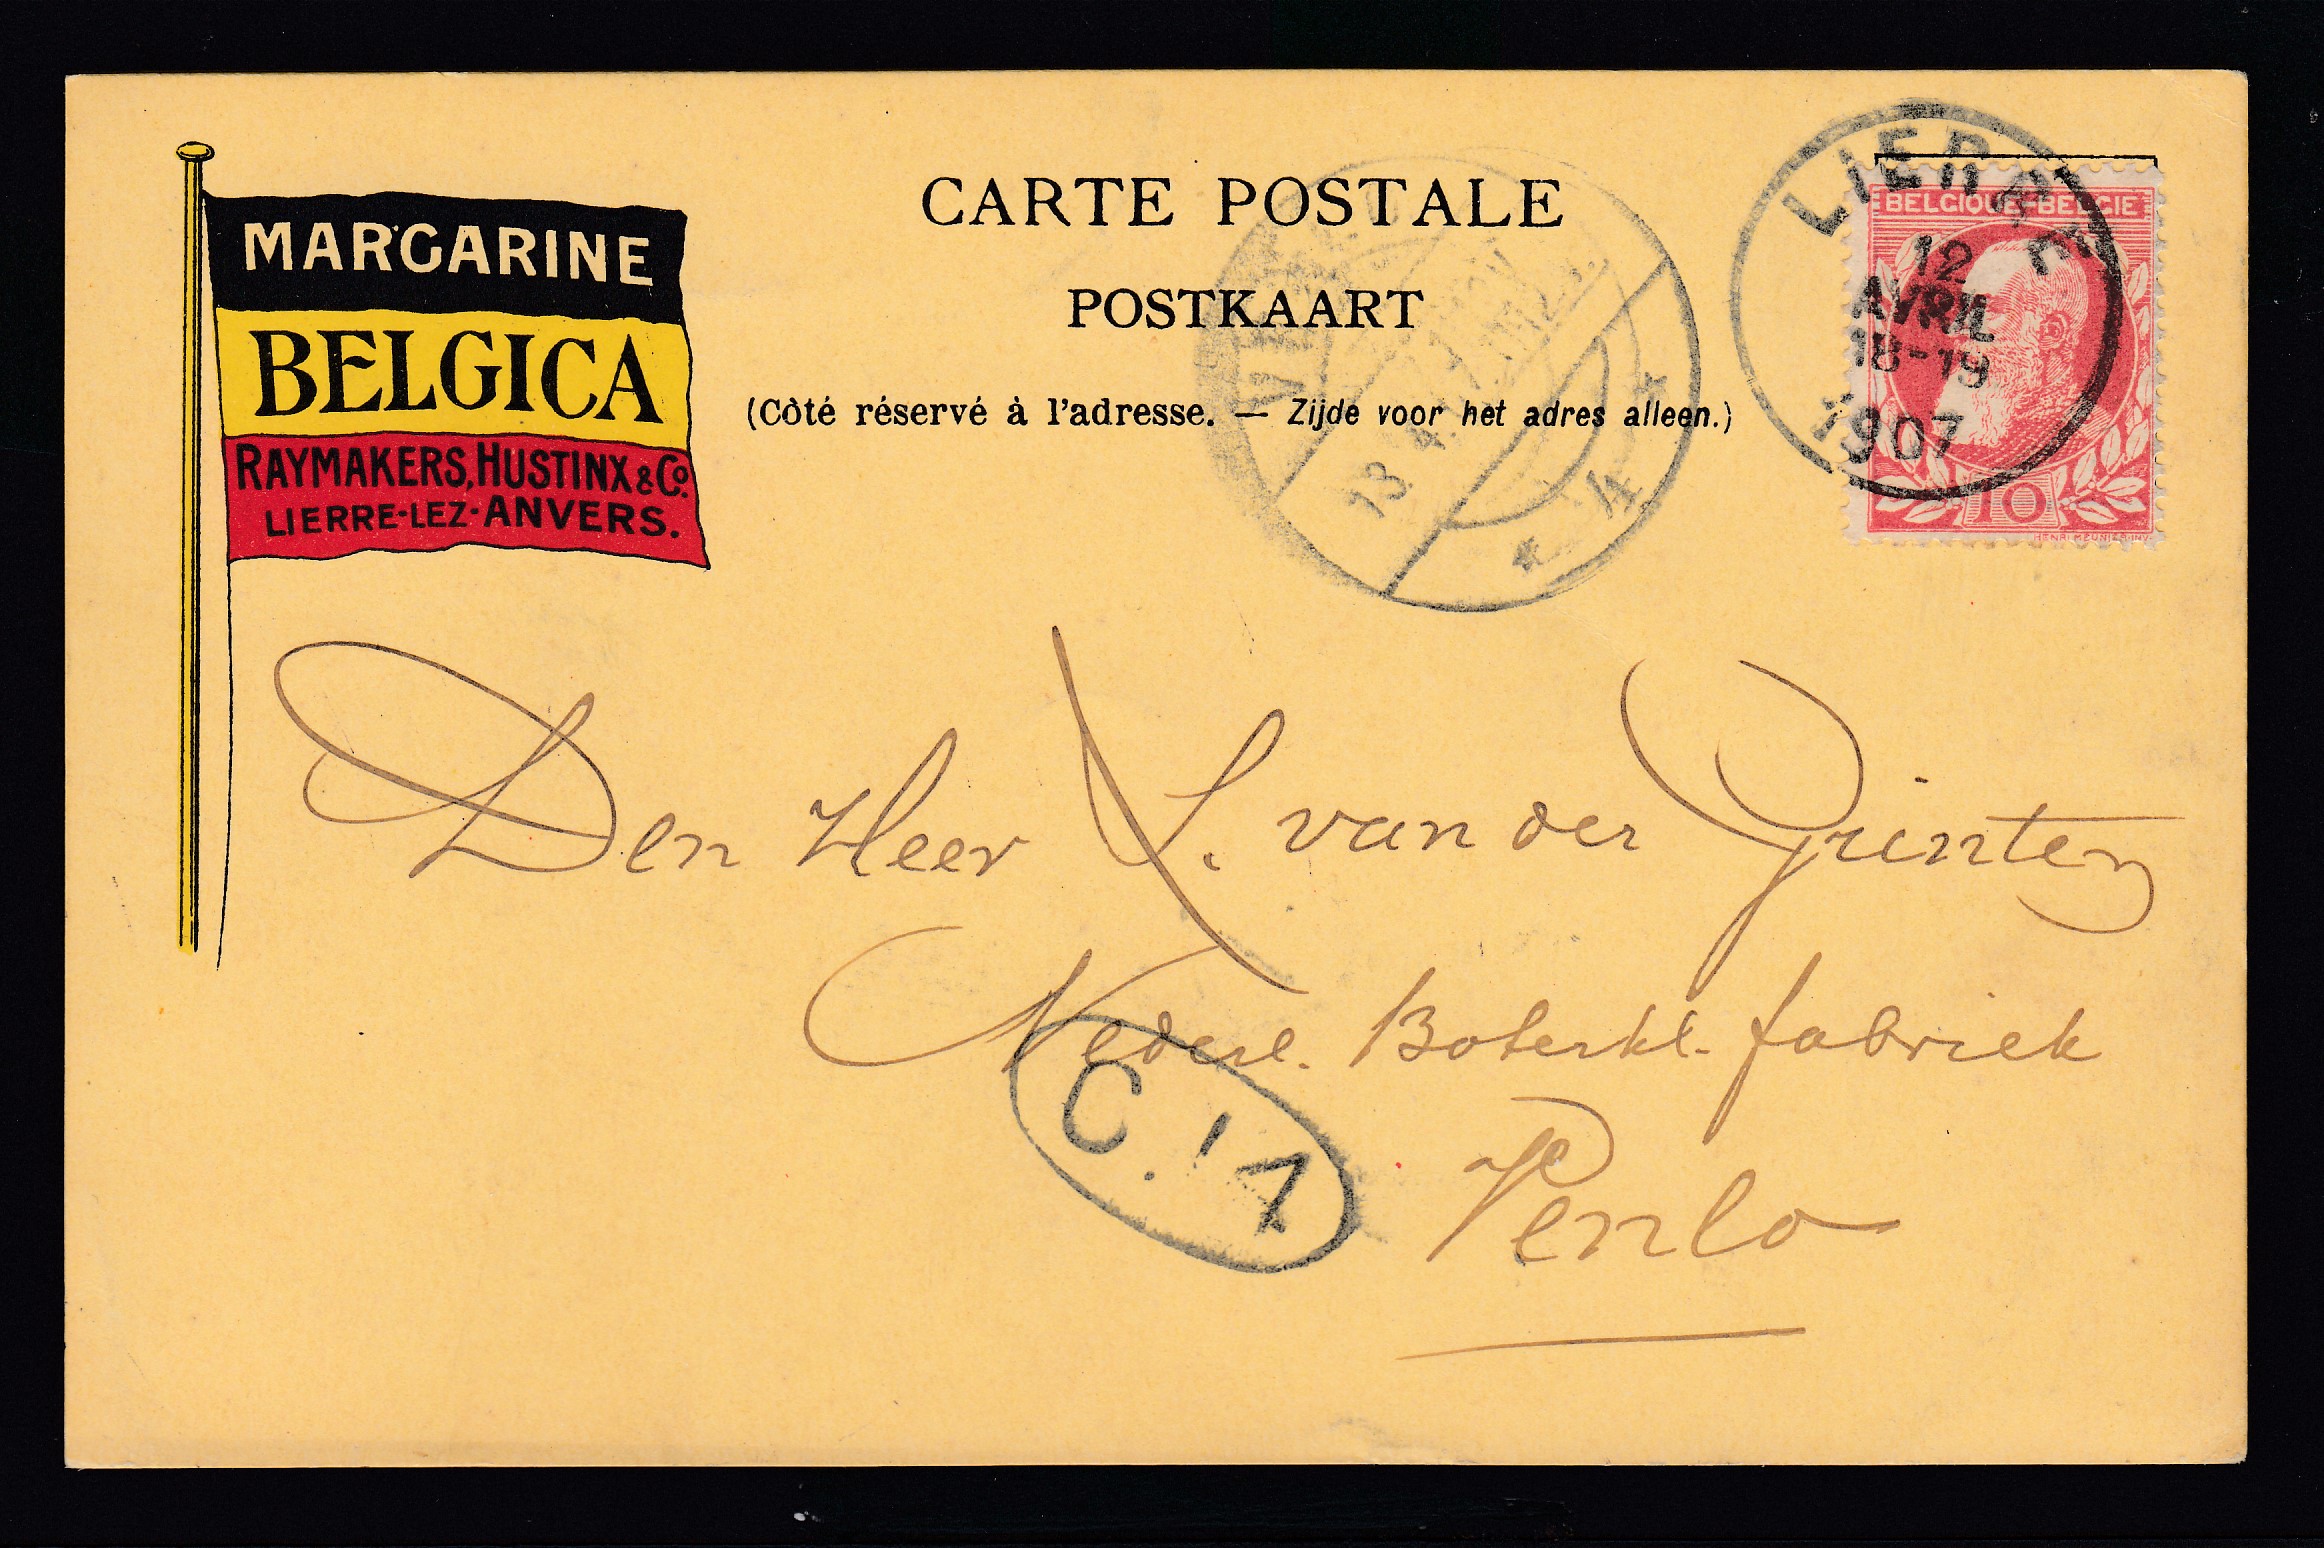 MARGARINE
BELGICA
RAYMAKERS, HUSTINX & Co.
LIERRE-LEZ-ANVERS.
CARTE POSTALE
POSTKAART
(Côté réservé à l'adresse. — Zijde voor het adres alleen.)
LIERRE
12
AVRIL
18-19
1907
BELGIQUE-BELGIE
10
HENRI MEUNIER INV.
13 4
4
Den Heer L. van der Grinten
Nederl. Boterkl. fabriek
Venlo
C. 14